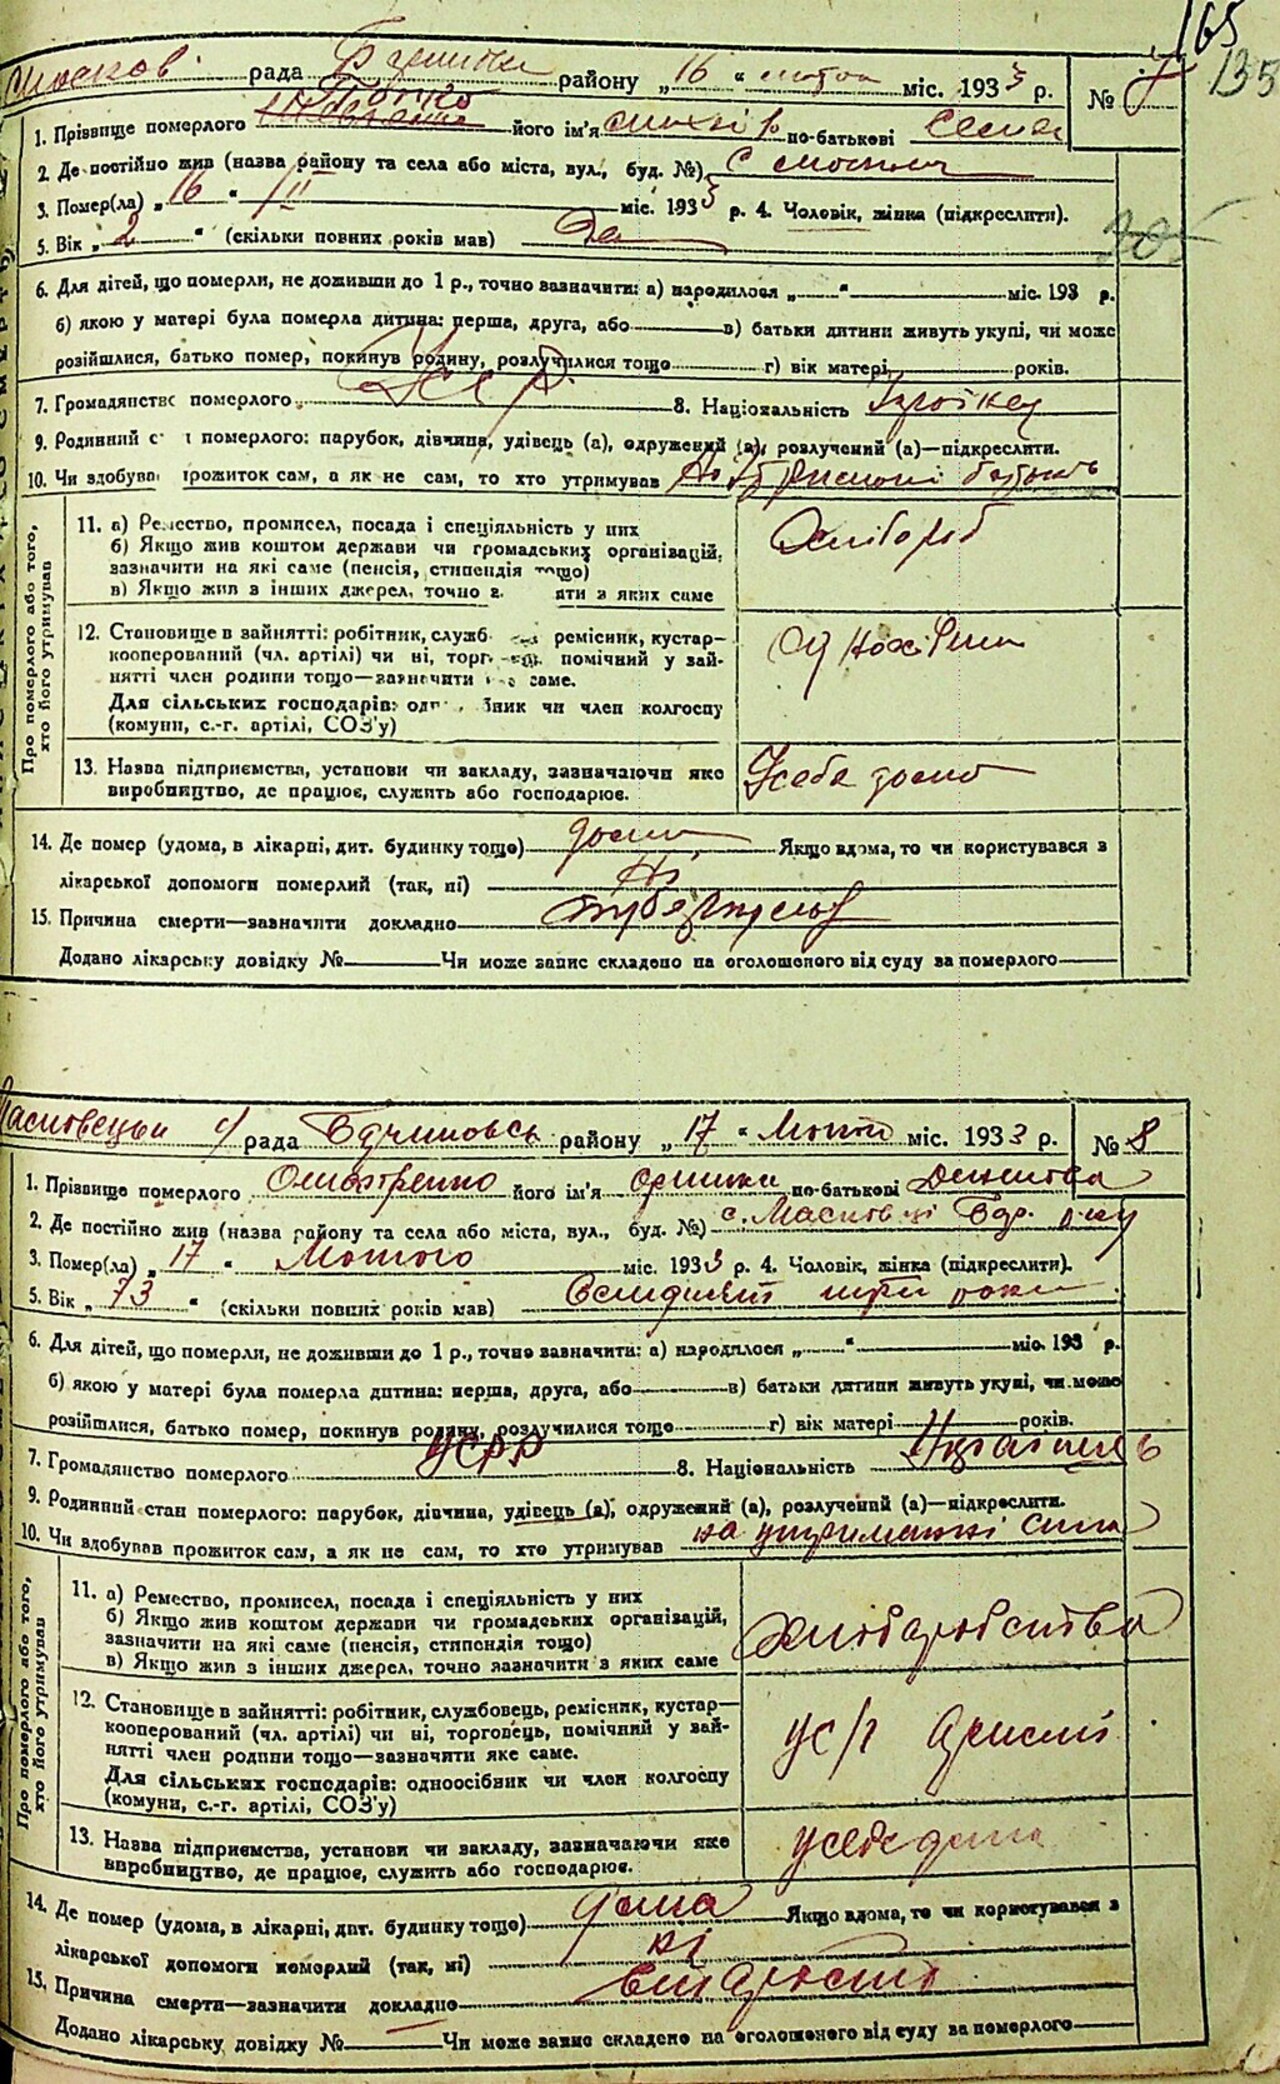 165
135
рада району „16 “ міс. 1933 р. №
1. Прізвище померлого його ім'я по-батькові
2. Де постійно жив (назва району та села або міста, вул., буд. №) с
3. Помер(ла) „16 “ II міс. 1933 р. 4. Чоловік, жінка (підкреслити).
5. Вік „ 2 “ (скільки повних років мав) 2а
6. Для дітей, що померли, не доживши до 1 р., точно зазначити: а) народилося „ “ міс. 193 р.
б) якою у матері була померла дитина: перша, друга, або в) батьки дитини живуть укупі, чи може
розійшлися, батько помер, покинув родину, розлучилися тощо г) вік матері, років.
7. Громадянство померлого 8. Національність
9. Родинний с померлого: парубок, дівчина, удівець (а), одружений (а), розлучений (а)—підкреслити.
10. Чи здобува прожиток сам, а як не сам, то хто утримував
Про померлого або того,
хто його утримував
11. а) Ремество, промисел, посада і спеціяльність у них
б) Якщо жив коштом держави чи громадських організацій,
зазначити на які саме (пенсія, стипендія тощо)
в) Якщо жив з інших джерел, точно з яти з яких саме
Хлібороб
12. Становище в зайнятті: робітник, службо ремісник, кустар—
кооперований (чл. артілі) чи ні, торг помічний у зай-
нятті член родини тощо—зазначити саме.
Для сільських господарів: од бник чи член колгоспу
(комуни, с.-г. артілі, СОЗ'у)
13. Назва підприємства, установи чи закладу, зазначаючи яке
виробництво, де працює, служить або господарює.
У себе дома
14. Де помер (удома, в лікарні, дит. будинку тощо) дома Якщо вдома, то чи користувався з
лікарської допомоги померлий (так, ні) Ні
15. Причина смерти—зазначити докладно туберкульоз
Додано лікарську довідку № Чи може запис складено на оголошеного від суду за померлого
рада району „17 “ Лютого міс. 1933 р. № 8
1. Прізвище померлого його ім'я по-батькові
2. Де постійно жив (назва району та села або міста, вул., буд. №) с. Масковці Бдр. р-ну
3. Помер(ла) „ 17 “ Лютого міс. 1933 р. 4. Чоловік, жінка (підкреслити).
5. Вік „ 73 “ (скільки повних років мав) Сімдисят три роки
6. Для дітей, що померли, не доживши до 1 р., точно зазначити: а) народилося „ “ міс. 193 р.
б) якою у матері була померла дитина: перша, друга, або в) батьки дитини живуть укупі, чи може
розійшлися, батько помер, покинув родину, розлучилися тощо г) вік матері років.
7. Громадянство померлого УСРР 8. Національність
9. Родинний стан померлого: парубок, дівчина, удівець (а), одружений (а), розлучений (а)—підкреслити.
10. Чи здобував прожиток сам, а як не сам, то хто утримував на утриманні сина
Про померлого або того,
хто його утримував
11. а) Ремество, промисел, посада і спеціяльність у них
б) Якщо жив коштом держави чи громадських організацій,
зазначити на які саме (пенсія, стипендія тощо)
в) Якщо жив з інших джерел, точно зазначити з яких саме
12. Становище в зайнятті: робітник, службовець, ремісник, кустар—
кооперований (чл. артілі) чи ні, торговець, помічний у зай-
нятті член родини тощо—зазначити яке саме.
Для сільських господарів: одноосібник чи член колгоспу
(комуни, с.-г. артілі, СОЗ'у)
13. Назва підприємства, установи чи закладу, зазначаючи яке
виробництво, де працює, служить або господарює.
у себе дома
14. Де помер (удома, в лікарні, дит. будинку тощо) дома Якщо вдома, то чи користувався з
лікарської допомоги померлий (так, ні) ні
15. Причина смерти—зазначити докладно
Додано лікарську довідку № Чи може запис складено на оголошеного від суду за померлого